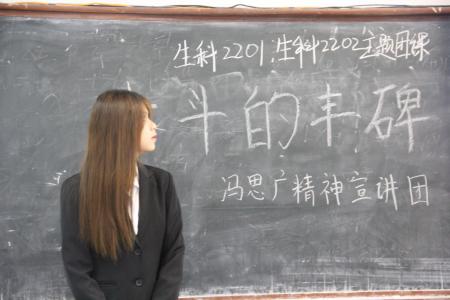 生科2201、生科2202主题团课
斗的丰碑
冯思广精神宣讲团